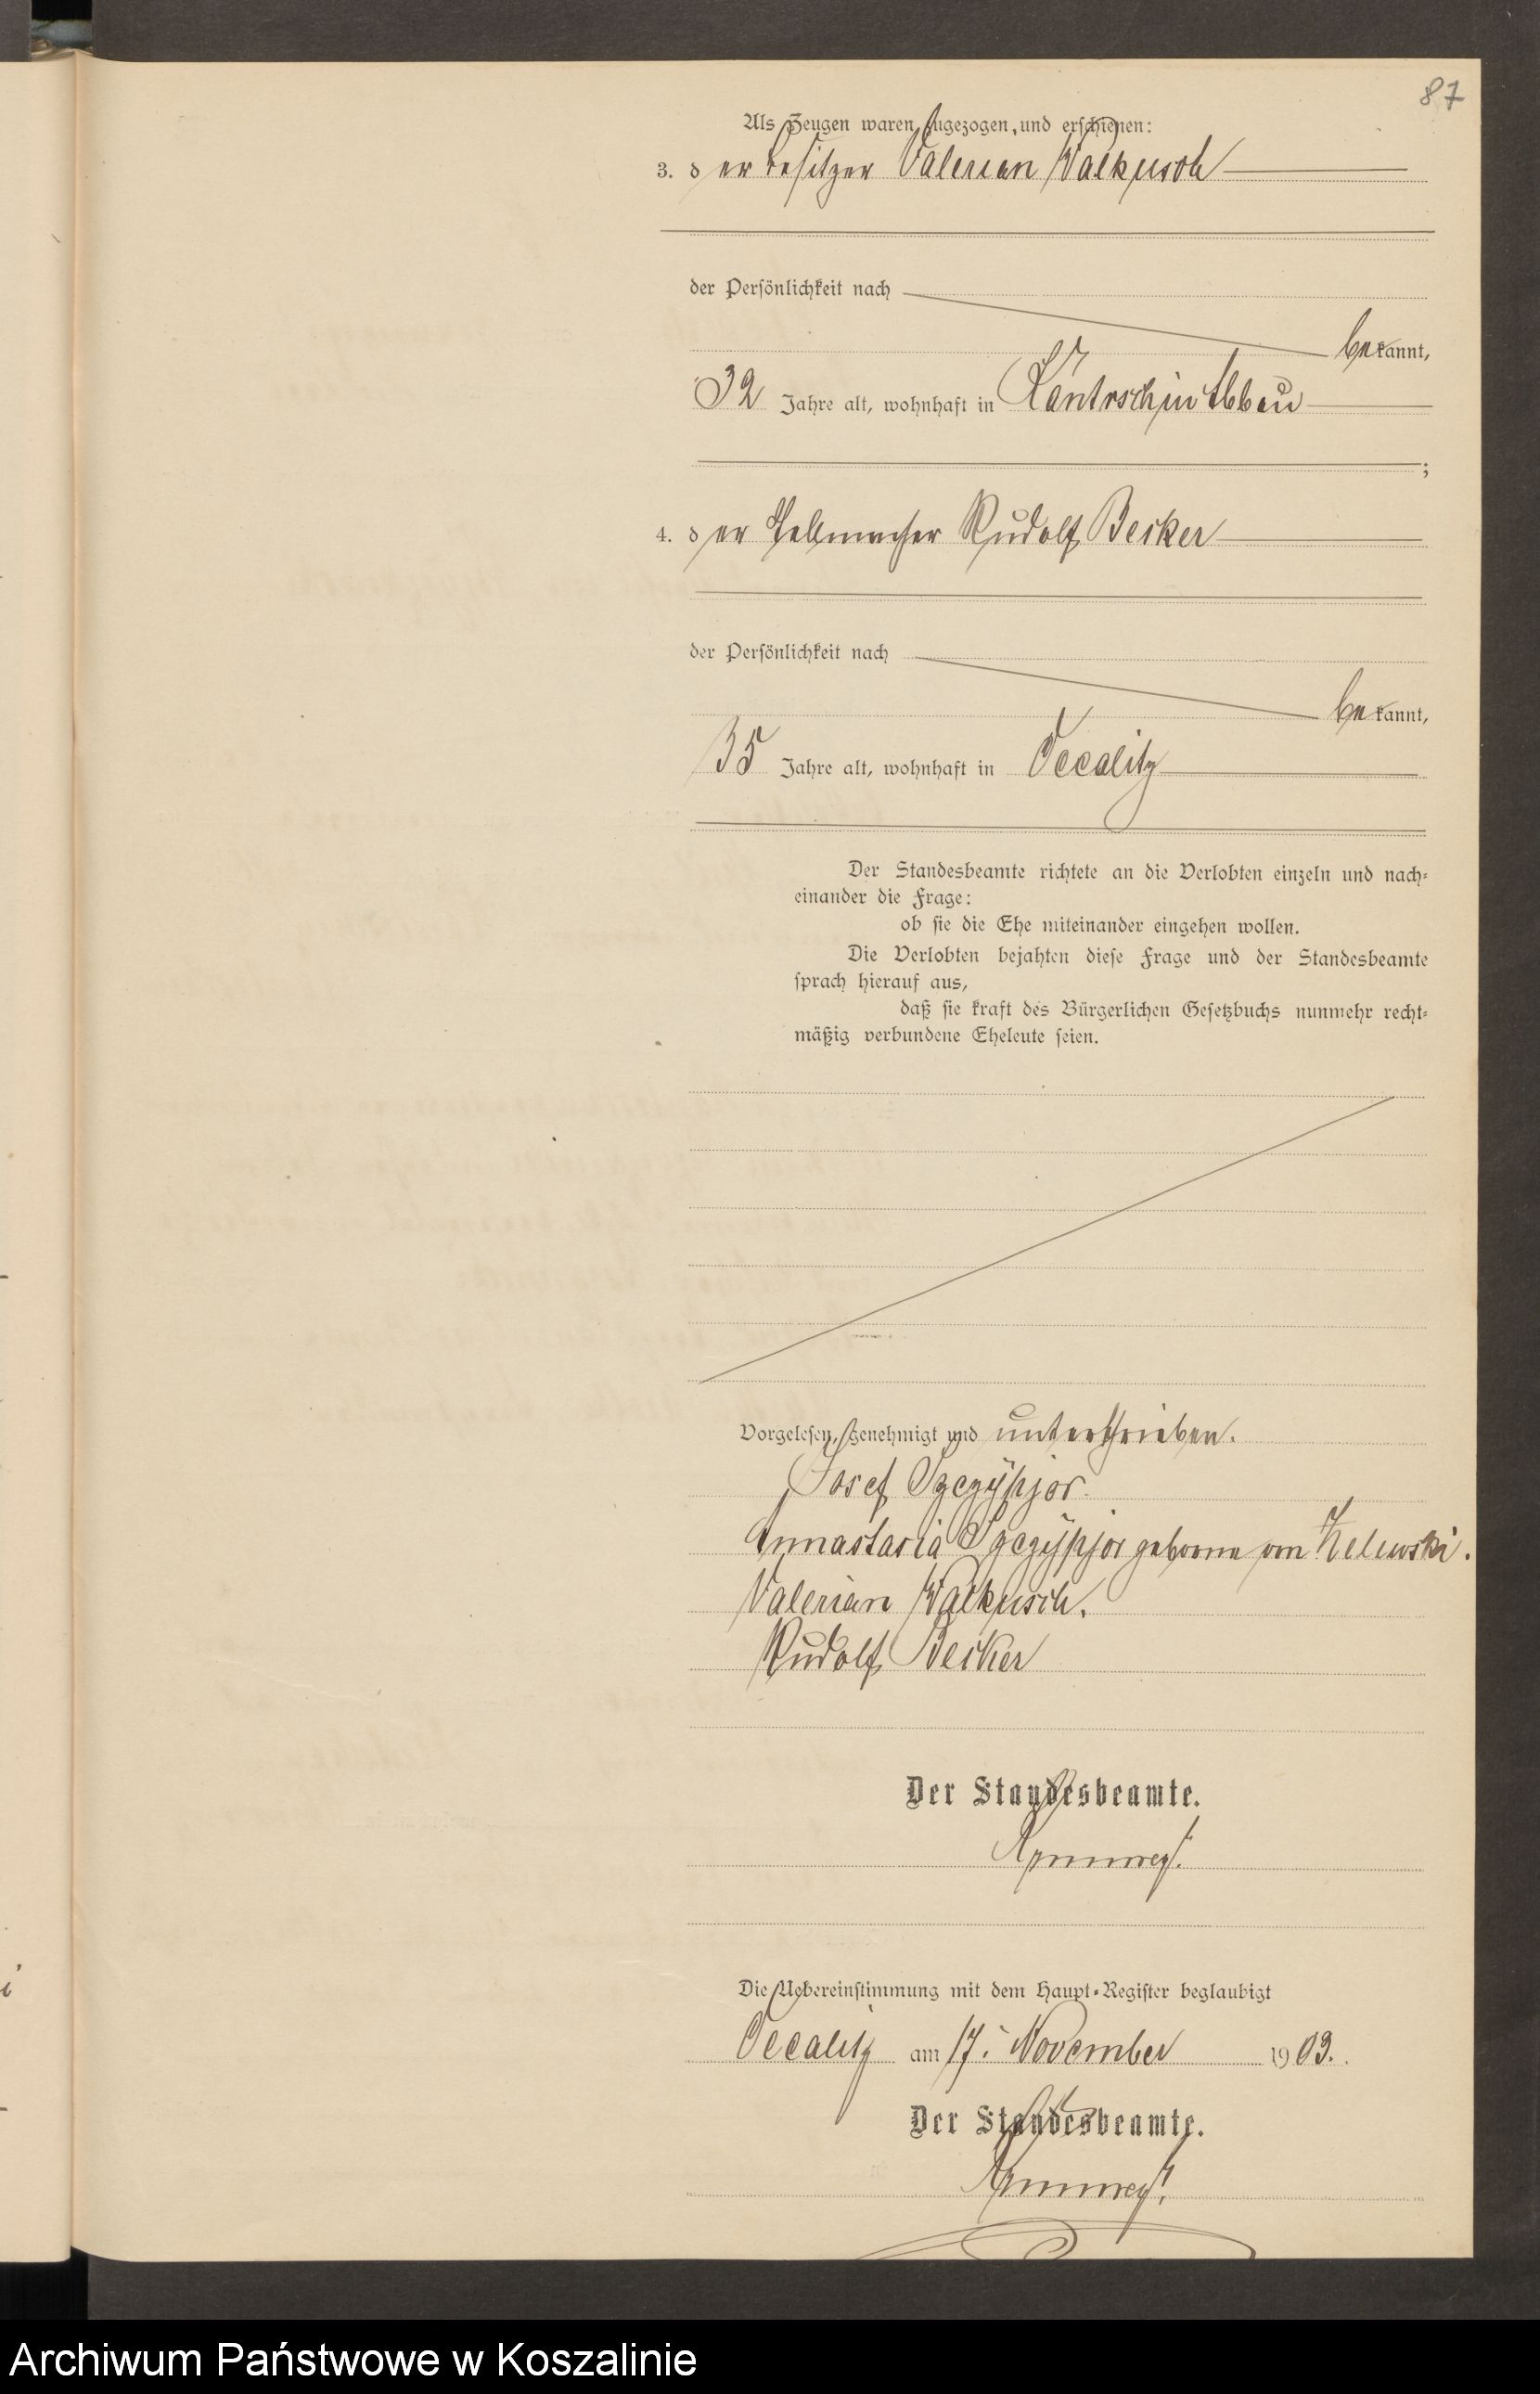 87
Als Zeugen waren zugezogen und erschienen:
3. der Besitzer Valerian Walkusch
der Persönlichkeit nach
bekannt,
32 Jahre alt, wohnhaft in Kantrschin Abbau
;
4. der Stellmacher Rudolf Becker
der Persönlichkeit nach
bekannt,
35 Jahre alt, wohnhaft in Occalitz
Der Standesbeamte richtete an die Verlobten einzeln und nach-
einander die Frage:
ob sie die Ehe miteinander eingehen wollen.
Die Verlobten bejahten diese Frage und der Standesbeamte
sprach hierauf aus,
daß sie kraft des Bürgerlichen Gesetzbuchs nunmehr recht-
mäßig verbundene Eheleute seien.
Vorgelesen, genehmigt und unterschrieben.
Josef Szczÿpjor.
Annastasia Szczÿpjor geborene von Zelewski.
Valerian Walkusch.
Rudolf Becker
Der Standesbeamte.
Die Uebereinstimmung mit dem Haupt-Register beglaubigt
Occalitz am 17. November 1903.
Der Standesbeamte.
Archiwum Państwowe w Koszalinie